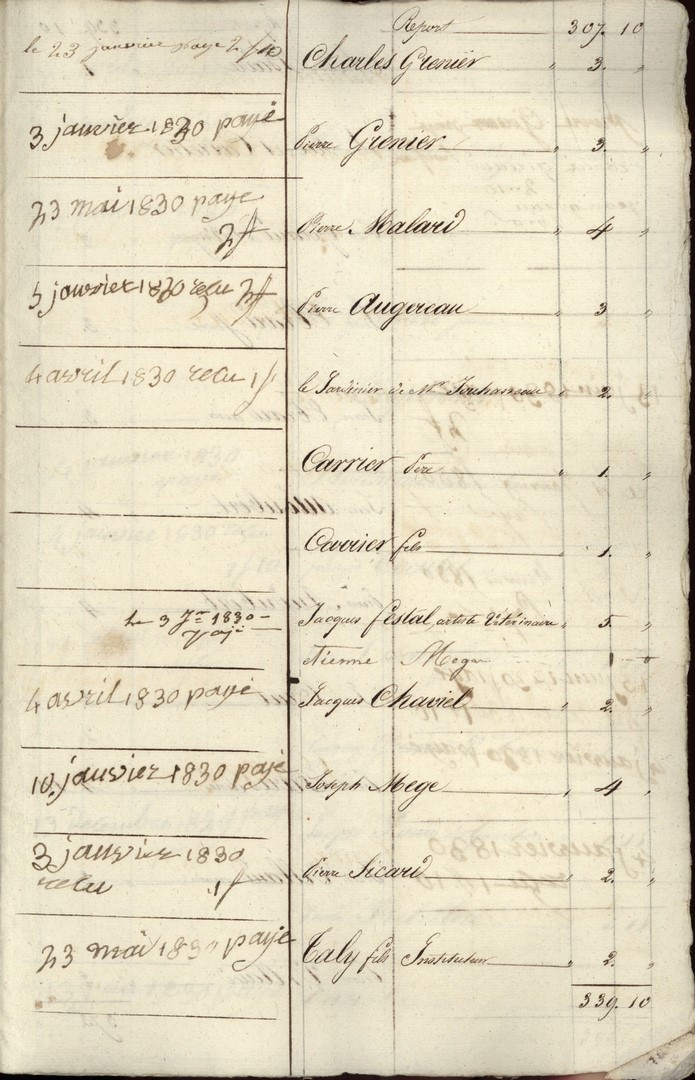 Report 307. 10
le 23 janvier paye 2f 10
Charles Grenier " 3. "
3 janvier 1830 payé
Pierre Grenier " 3. "
23 mai 1830 paye
2f
Pierre Malard " 4 "
3 janvier 1830 recu 2f
Pierre Augereau " 3 "
4 avril 1830 recu 1f
le Jardinier de Mr " 2. "
Carrier Père " 1. "
Carrier fils " 1. "
le 3 Jer 1830
payé
Jacques Festal, artiste Vétérinaire " 5. "
Etienne 1
4 avril 1830 payé
Jacques Chaviel " 2. "
10 janvier 1830 payé
Joseph Mege " 4 "
3 janvier 1830
recu 1f
Pierre Sicard " 2. "
23 mai 1830 payé
Taly fils Instituteur " 2. "
339. 10